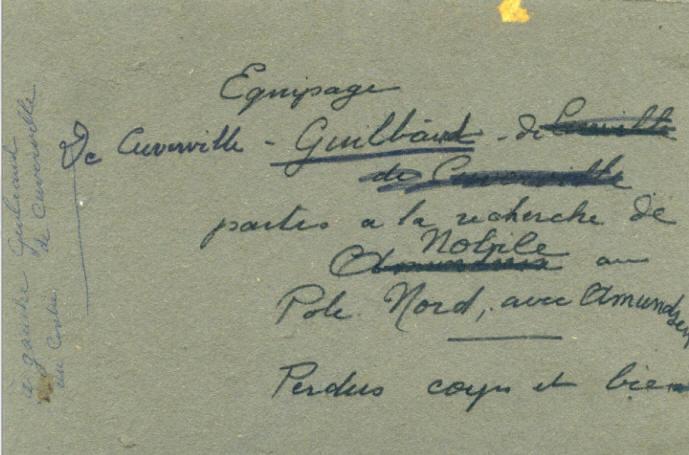 Equipage
De Cuverville - Guilbaud - de Cuverville
de Cuverville
partis a la recherche de
Nobile
Amundsen au
Pole Nord, avec Amundsen
Perdus corps et bien
à gauche Guilbaud
de Cuverville
au Centre